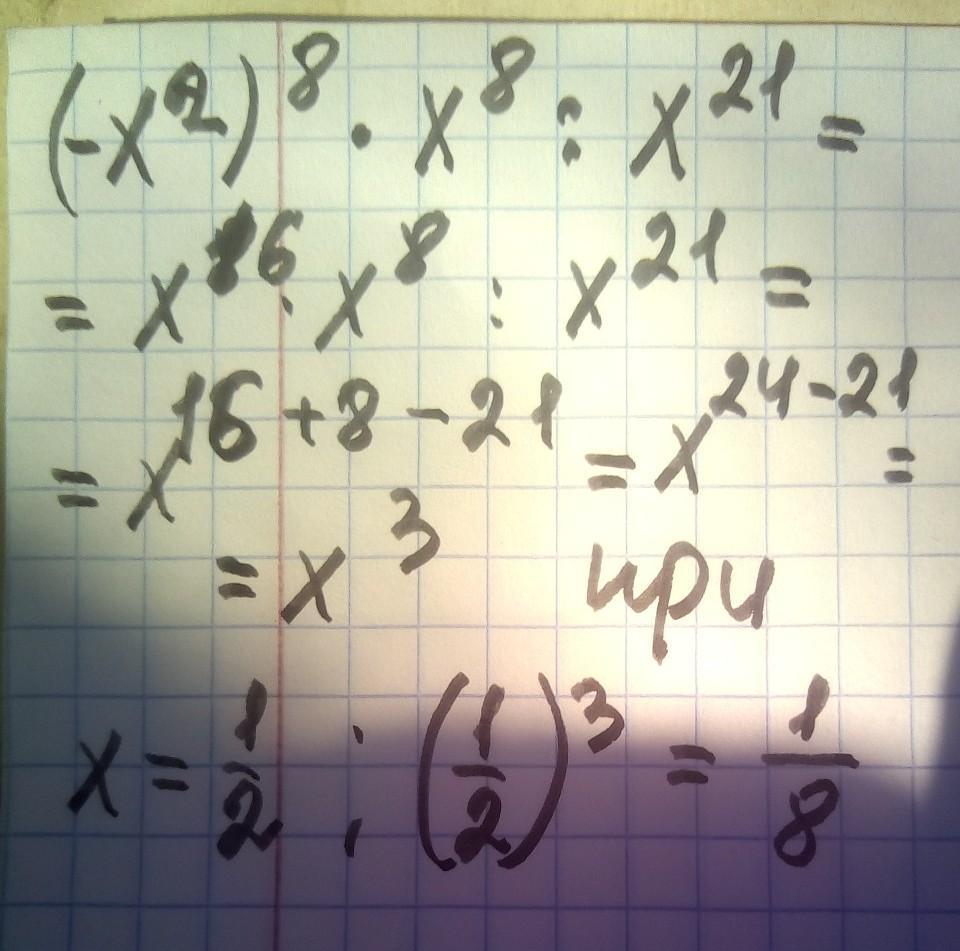 (-x²)⁸ · x⁸ : x²¹ =
= x¹⁶ · x⁸ : x²¹ =
= x¹⁶⁺⁸⁻²¹ = x²⁴⁻²¹ =
= x³ при
x = 1/2 ; (1/2)³ = 1/8